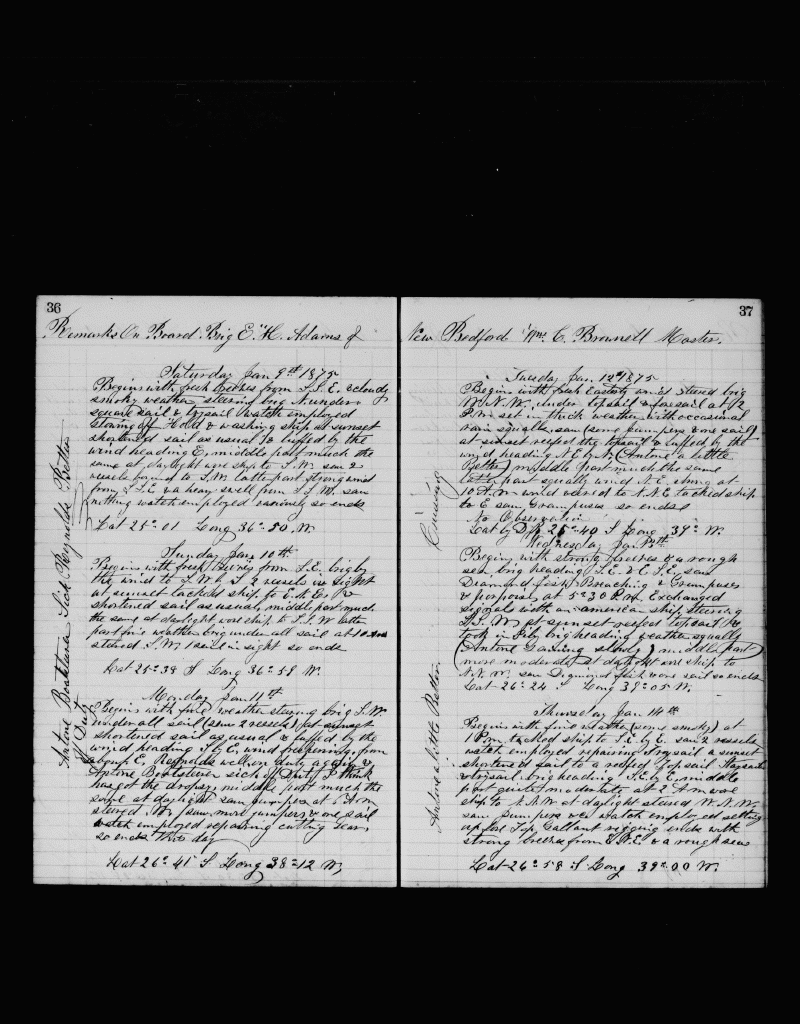 36
Remarks On Board Brig E. H. Adams of
Saturday Jan 9th 1875
Begins with fresh breezes from S.S.E. & cloudy
smoky weather steering brig N. under
square sail & trysail watch employed
stowing off Hold & washing ship at sunset
shortened sail as usual & luffed by the
wind heading E, middle part much the
same at daylight wore ship to S.W. saw 2
vessels bound to S.W. latter part strong wind
from S.E. & a heavy swell from S.W. saw
nothing watch employed variously so ends
Lat 25°01 Long 36°50 W.
Sunday Jan 10th
Begins with fresh breezes from S.E. brig by
the wind to S.W. 2 vessels in sight
at sunset tacked ship to E.N.E.
shortened sail as usual, middle part much
the same at daylight wore ship to S.S.W latter
part fine weather brig under all sail at 10
steered S.W. 1 sail in sight so ends
Lat 25°38 S Long 36°59 W.
Monday Jan 11th
Begins with fine weather steering brig S.W.
under all sail (saw 2 vessels) at sunset
shortened sail as usual & luffed by the
wind heading wind freshening from
E. Reynolds well on duty again &
Antone sick off Duty I think
has got the dropsy, middle part much the
same at daylight saw jumpers at 6 A.m
steered W. (saw more jumpers & one sail
watch employed repairing cutting gear,
so ends this day
Lat 26°41 S Long 38°12 W,
Antone Sick Reynolds Better
off Duty
37
New Bedford Wm. C. Brownell Master.
Tuesday Jan. 12th 1875
Begins with fresh Easterly wind steered brig
W.N.W. under topsail & foresail at 2
P.m set in thick weather with occasional
rain squalls. saw (some jumpers & one sail)
at sunset reefed the topsail & luffed by the
wind heading N.E by N. (Antone a little
Better) middle part much the same
latter part squally wind N.E. strong at
10 A.m wind veered to N.N.E tacked ship
to E saw Grampuses so ends
No Observation
Lat by D.R. 26°40 S Long 39° W.
Wednesday Jan 13th
Begins with strong breezes & a rough
sea brig heading S.E. & E.S.E. saw
Diamond fish Breaching & Grampuses
& porpoises at 5=30 P.m Exchanged
signals with an american ship, steering
S.S.W. at sunset reefed topsail &
took in Jib, brig heading weather squally
(Antone Gaining slowly) middle part
more moderate at daylight wore ship to
N.N.W. saw Diamond fish & one sail so ends
Lat 26°24 S Long 39°05 W.
Thursday Jan 14th
Begins with fine weather (some smoky) at
1 P.m tacked ship to S.E. by E. saw 2 vessels
watch employed repairing trysail a sunset
shortened sail to a reefed Top sail Staysail
& trysail brig heading S.E by E. middle
part quite moderate at 2 A.m wore
ship to N.N.W at daylight steered W.N.W.
saw jumpers &c watch employed setting
up fore Top Gallant rigging ends with
strong breezes from E.N.E. & a rough sea
Lat 26°58 S Long 39°00 W.
Cruising
Antone a little Better